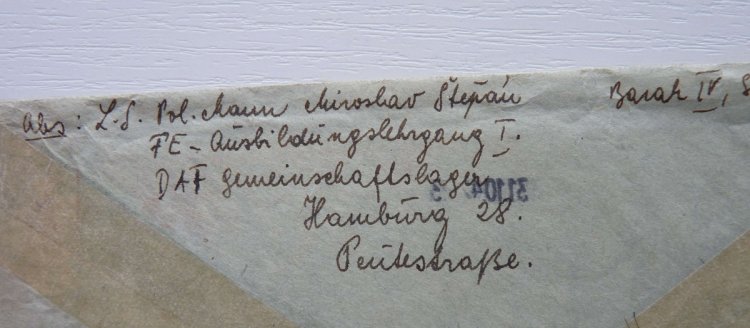 Abs: L.S. Pol. Mann Miroslav Štěpán Barak IV,
FE - Ausbildungslehrgang I.
DAF Gemeinschaftslager
Hamburg 28.
Peutestraße.